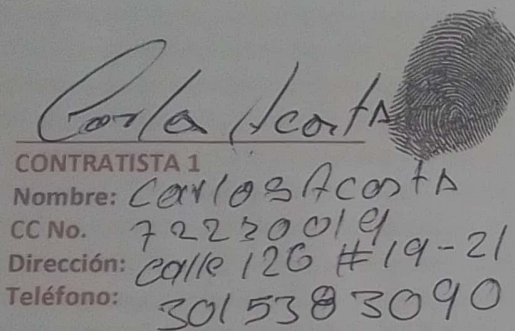 Carlos Acosta
CONTRATISTA 1
Nombre: Carlos Acosta
CC No. 72230019
Dirección: calle 126 #19-21
Teléfono: 3015383090